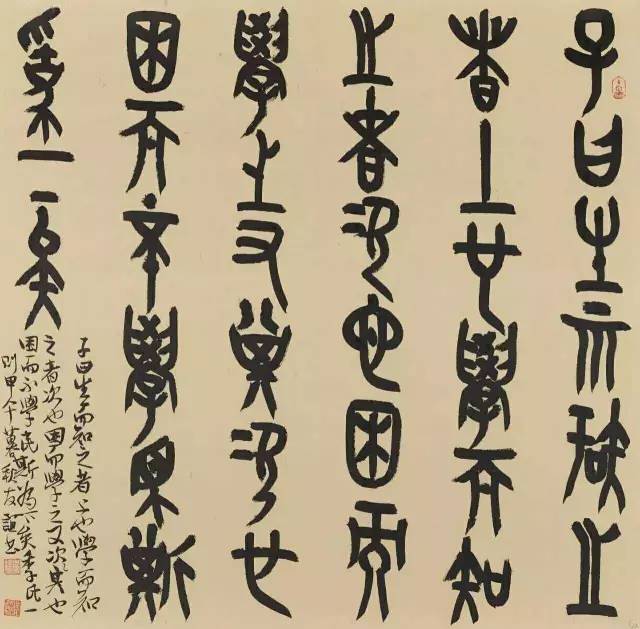 子曰生而知之
者上也學而知
之者次也困而
學之又其次也
困而不學民斯
為下矣
子曰生而知之者上也學而知
之者次也困而學之又次其也
困而不學民斯為下矣季氏一
則甲午暮秋友誼書